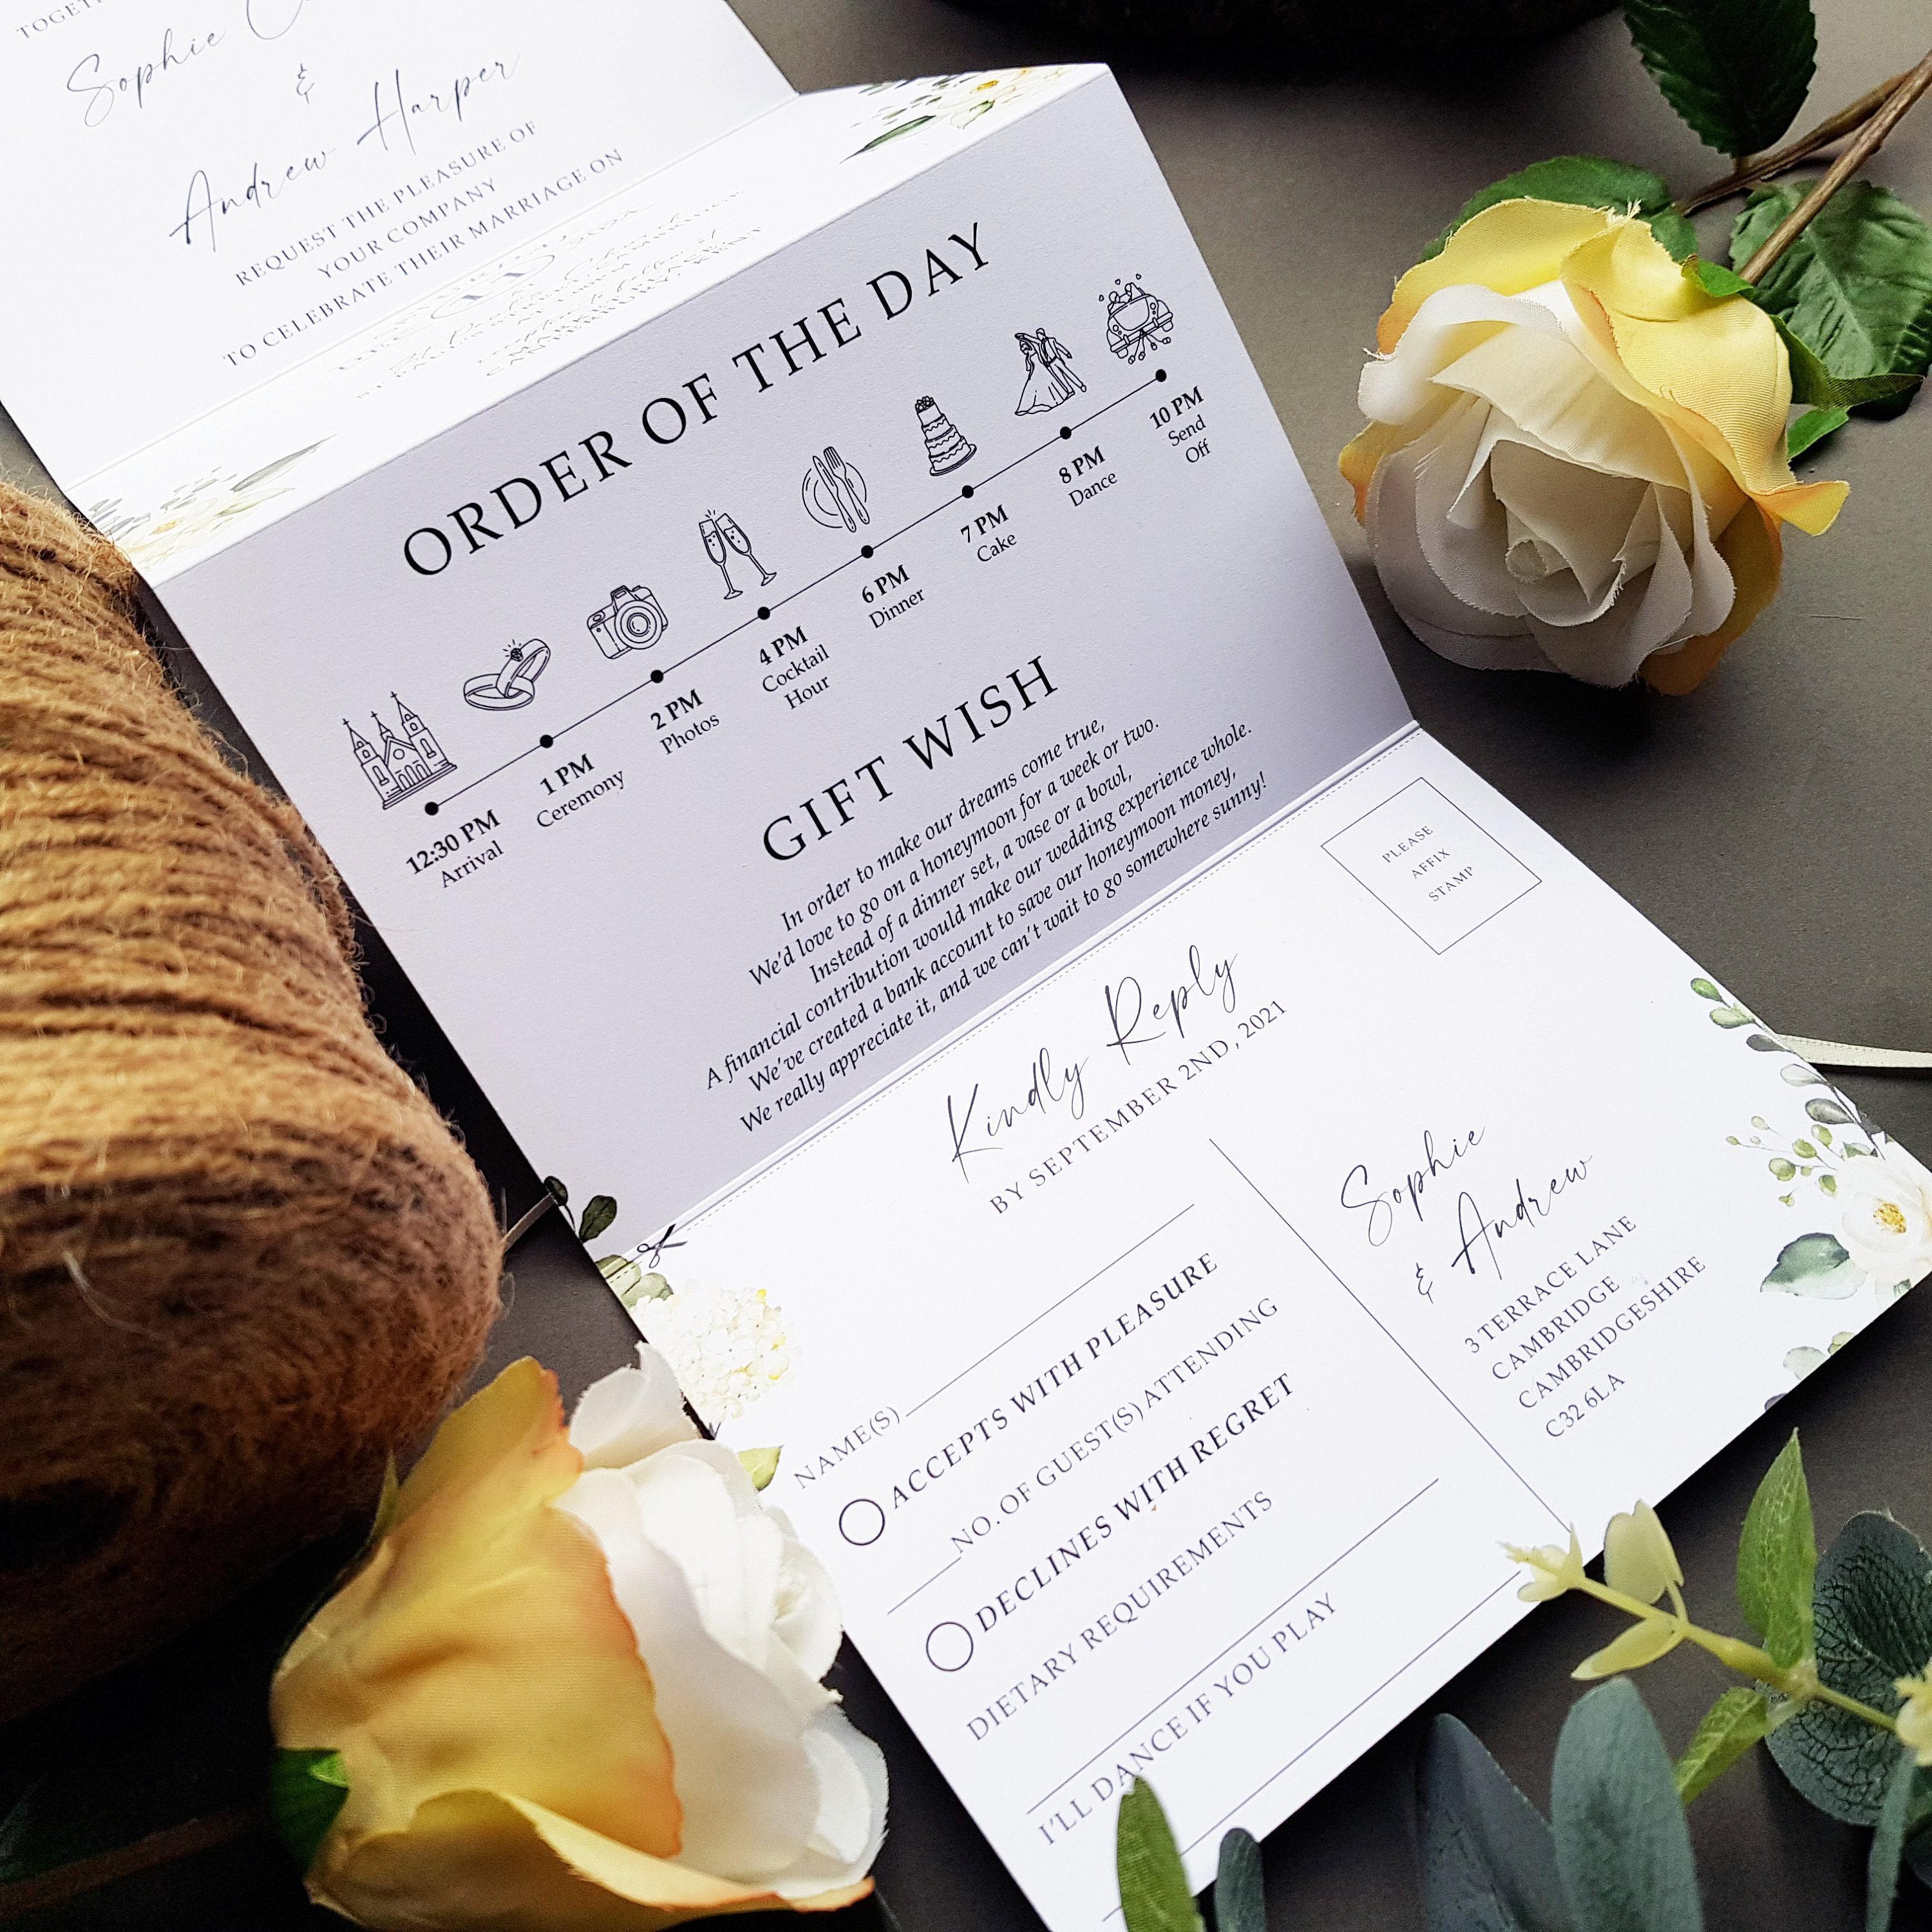 TOGETH
Sophie
&
Andrew Harper
REQUEST THE PLEASURE OF
YOUR COMPANY
TO CELEBRATE THEIR MARRIAGE ON
ORDER OF THE DAY
12:30 PM
Arrival
1 PM
Ceremony
2 PM
Photos
4 PM
Cocktail
Hour
6 PM
Dinner
7 PM
Cake
8 PM
Dance
10 PM
Send
Off
GIFT WISH
In order to make our dreams come true,
We'd love to go on a honeymoon for a week or two.
Instead of a dinner set, a vase or a bowl,
A financial contribution would make our wedding experience whole.
We've created a bank account to save our honeymoon money,
We really appreciate it, and we can't wait to go somewhere sunny!
Kindly Reply
BY SEPTEMBER 2ND, 2021
NAME(S)
ACCEPTS WITH PLEASURE
NO. OF GUEST(S) ATTENDING
DECLINES WITH REGRET
DIETARY REQUIREMENTS
I'LL DANCE IF YOU PLAY
PLEASE
AFFIX
STAMP
Sophie
& Andrew
3 TERRACE LANE
CAMBRIDGE
CAMBRIDGESHIRE
C32 6LA